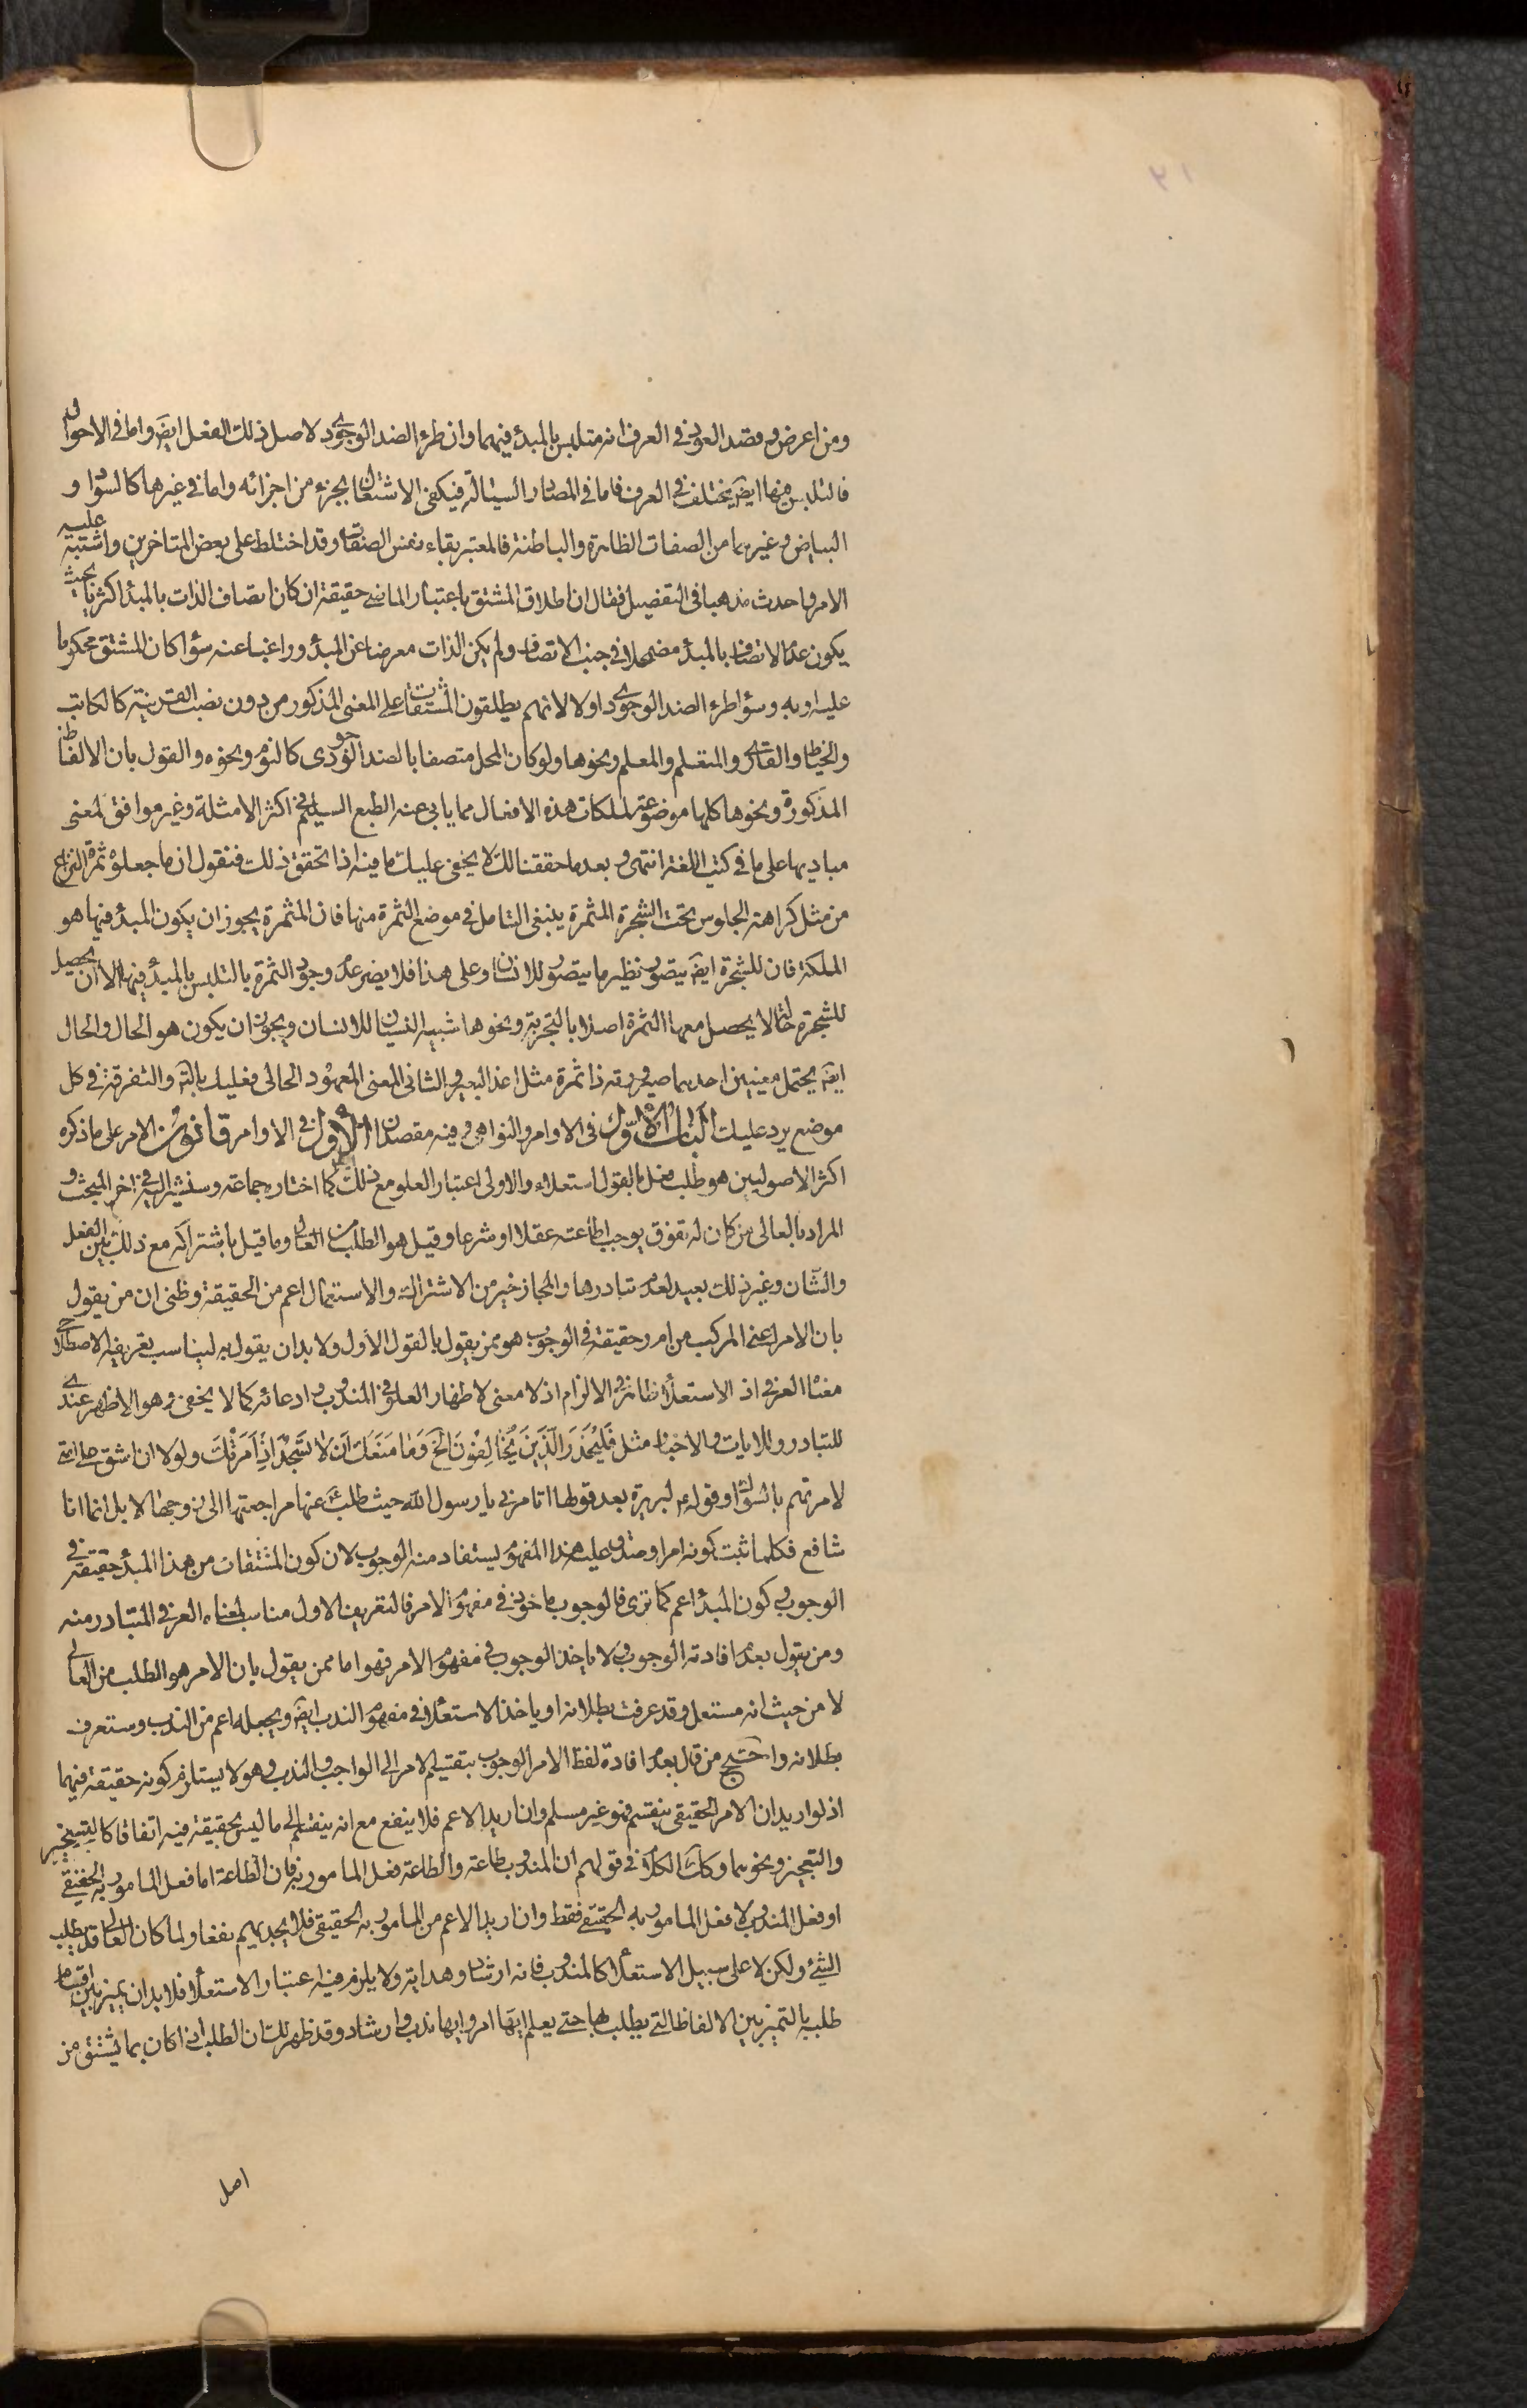 ومن اعرض وقصد العود في العرف انه متلبس بالمبدء فيهما وان طرء الضد الوجودي لاصل ذلك الفعل ايضَ واما في الاحوال
فالتلبس فيها ايضَ يختلف في العرف فاما في المصادر السيالة فيكفى الاشتغال بجزء من اجزائه واما في غيرها كالسواد و
البياض وغيرهما من الصفات الظاهرة والباطنة فالمعتبر بقاء نفس الصفات وقد اختلط على بعض المتاخرين واشتبه عليه
الامر فاحدث مذهبا في التفصيل فقال ان اطلاق المشتق باعتبار الماضي حقيقة ان كان اتصاف الذات بالمبدء اكثريا بحيث
يكون عدم الاتصاف بالمبدء مضمحلا في جنب الاتصاف ولم يكن الذات معرضا عن المبدء وراغبا عنه سواء كان المشتق محكوما
عليه او به وسواء طرء الضد الوجودي اولا لانهم يطلقون المشتقات على المعنى المذكور من دون نصب القرينة كالكاتب
والخياط والقارى والمتعلم والمعلم ونحوها ولو كان المحل متصفا بالضد الوجودى كالنوم ونحوه والقول بان الالفاظ
المذكورة ونحوها كلها موضوعة لملكات هذه الافعال مما يابى عنه الطبع السليم في اكثر الامثلة وغير موافق لمعنى
مباديها على ما في كتب اللغة انتهى وبعد ما حققنا لك لا يخفى عليك ما فيه اذا تحقق ذلك فنقول ان ما جعلوه ثمرة النزاع
من مثل كراهة الجلوس تحت الشجرة المثمرة ينبغى التامل في موضع الثمرة منها فان المثمرة يجوز ان يكون المبدء فيها هو
الملكة فان للشجرة ايضَ يتصور نظير ما يتصور للانسان وعلى هذا فلا يضر عدم وجود الثمرة بالتلبس بالمبدء فيها الا ان يحصل
للشجرة حالة لا يحصل معها الثمرة اصلا بالتجربة ونحوها شبيه النسيان للانسان ويجوز ان يكون هو الحال والحال
ايضَ يحتمل معنيين احدهما صيرورته ذا ثمرة مثل اغد البعير والثانى المعنى المعهود الحالى فعليك بالتامل والتفرقة في كل
موضع يرد عليك الباب الاوّل في الاوامر والنواهى وفيه مقصدان الاول في الاوامر قانون الامر على ما ذكره
اكثر الاصوليين هو طلب فعل بالقول استعلاء والاولى اعتبار العلو مع ذلك كما اختاره جماعة وسنشير اليه في اخر المبحث و
المراد بالعالى من كان له تفوق يوجب اطاعته عقلا او شرعا وقيل هو الطلب من العالى وما قيل باشتراكه مع ذلك بين الفعل
والشان وغير ذلك بعيد لعدم تبادرها والمجاز خير من الاشتراك والاستعمال اعم من الحقيقة وظنى ان من يقول
بان الامر اعنى المركب من ام ر حقيقة في الوجوب هو ممن يقول بالقول الاول ولا بد ان يقول به ليناسب تعريفه الاصطلاحى
معناه العرفي اذ الاستعلاء ظاهر في الالزام اذ لا معنى لاظهار العلو في المندوب وادعائه كما لا يخفى وهو الاظهر عندي
للتبادر وللايات والاخبار مثل فَلْيَحْذَرِ الَّذِينَ يُخَالِفُونَ الخَ وَمَا مَنَعَكَ اَنْ لَا تَسْجُدَ اِذْ اَمَرْتُكَ ولولا ان اشق على امتي
لامرتهم بالسواك وقوله ع لبريرة بعد قولها اتامرنى يا رسول الله حيث طلب ع عنها مراجعتها الى زوجها لا بل انما انا
شافع فكلما ثبت كونه امرا وصدق عليه هذا المفهوم يستفاد منه الوجوب لان كون المشتقات من هذا المبدء حقيقة في
الوجوب وكون المبدء اعم كما ترى فالوجوب ماخوذ في مفهوم الامر فالتعريف الاول مناسب لمعناه العرفي المتبادر منه
ومن يقول بعدم افادته الوجوب ولا ياخذ الوجوب في مفهوم الامر فهو اما ممن يقول بان الامر هو الطلب من العالي
لا من حيث انه مستعل وقد عرفت بطلانه او ياخذ الاستعلاء في مفهوم الندب ايضَ ويجعله اعم من الندب وستعرف
بطلانه واحتج من قال بعدم افادة لفظ الامر الوجوب بتقسيم الامر الى الواجب والندب وهو لا يستلزم كونه حقيقة فيهما
اذ لو اريد ان الامر الحقيقى ينقسم فهو غير مسلم وان اريد الاعم فلا ينفع مع انه ينقسم الى ما ليس بحقيقة فيه اتفاقا كالتسخير
والتعجيز ونحوهما وكذا الكلام في قولهم ان المندوب طاعة والطاعة فعل المامور به فان الطاعة اما فعل المامور به الحقيقي
او فعل المندوب لا فعل المامور به الحقيقي فقط وان اريد الاعم من المامور به الحقيقى فلا يجديهم نفعا ولما كان العالى قد يطلب
الشئ ولكن لا على سبيل الاستعلاء كالمندوب فانه ارشاد وهداية ولا يلزم فيه اعتبار الاستعلاء فلا بد ان يميز بين اقسام
طلبه بالتميز بين الالفاظ التي يطلب بها حتى يعلم ايها امر وايها ندب وارشاد وقد ظهر لك ان الطلب اذا كان بما يشتق من
اصل